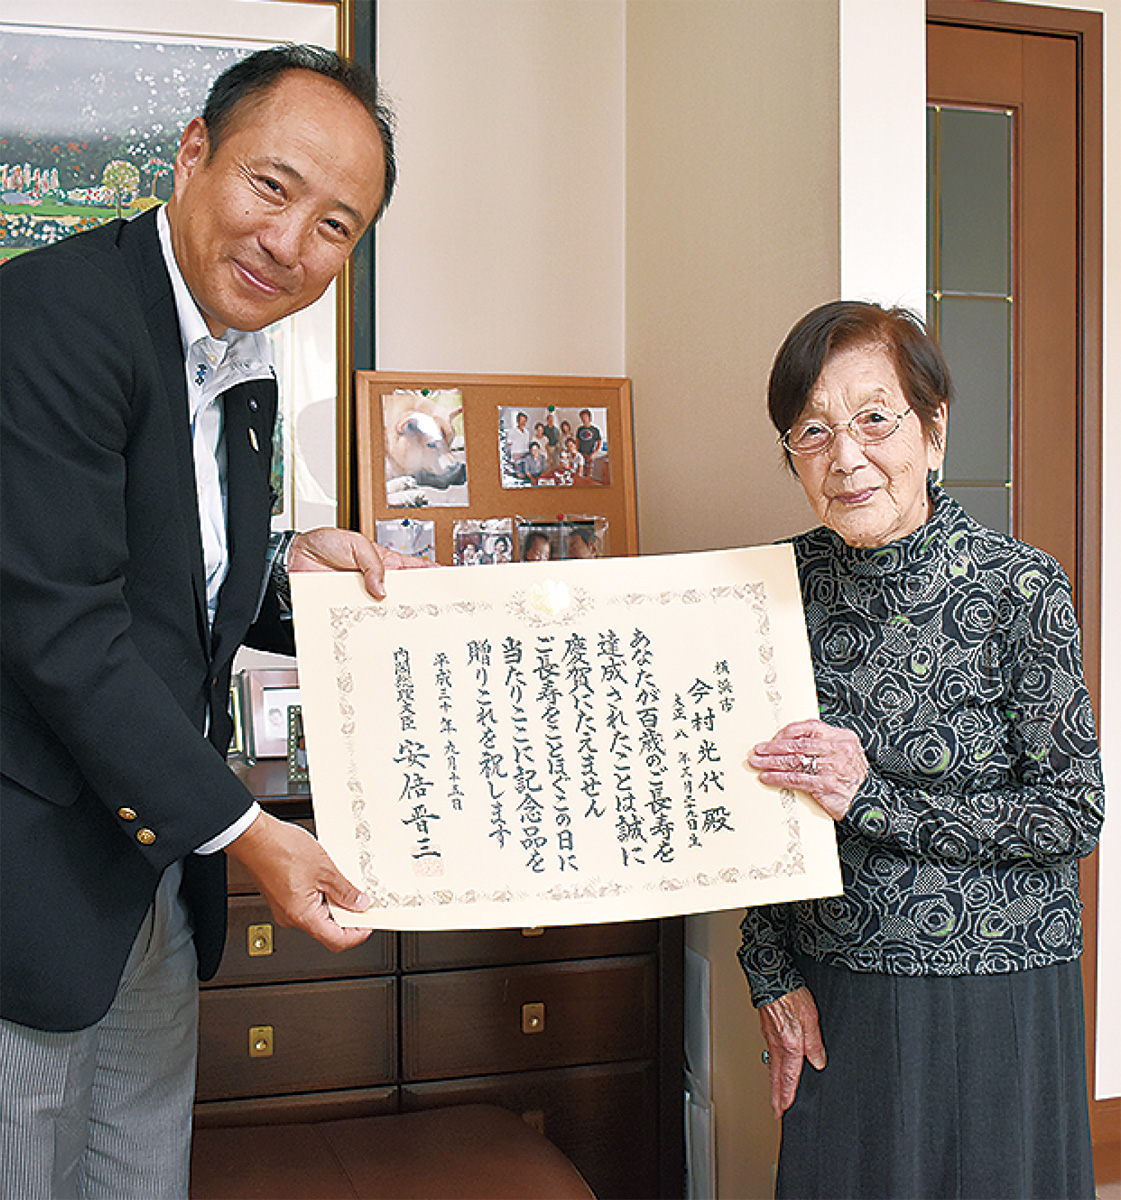 横浜市
今村光代殿
大正八年三月二十九日生
あなたが百歳のご長寿を
達成されたことは誠に
慶賀にたえません
ご長寿をことほぐこの日に
当たりここに記念品を
贈りこれを祝します
平成三十年九月十五日
内閣総理大臣 安倍晋三